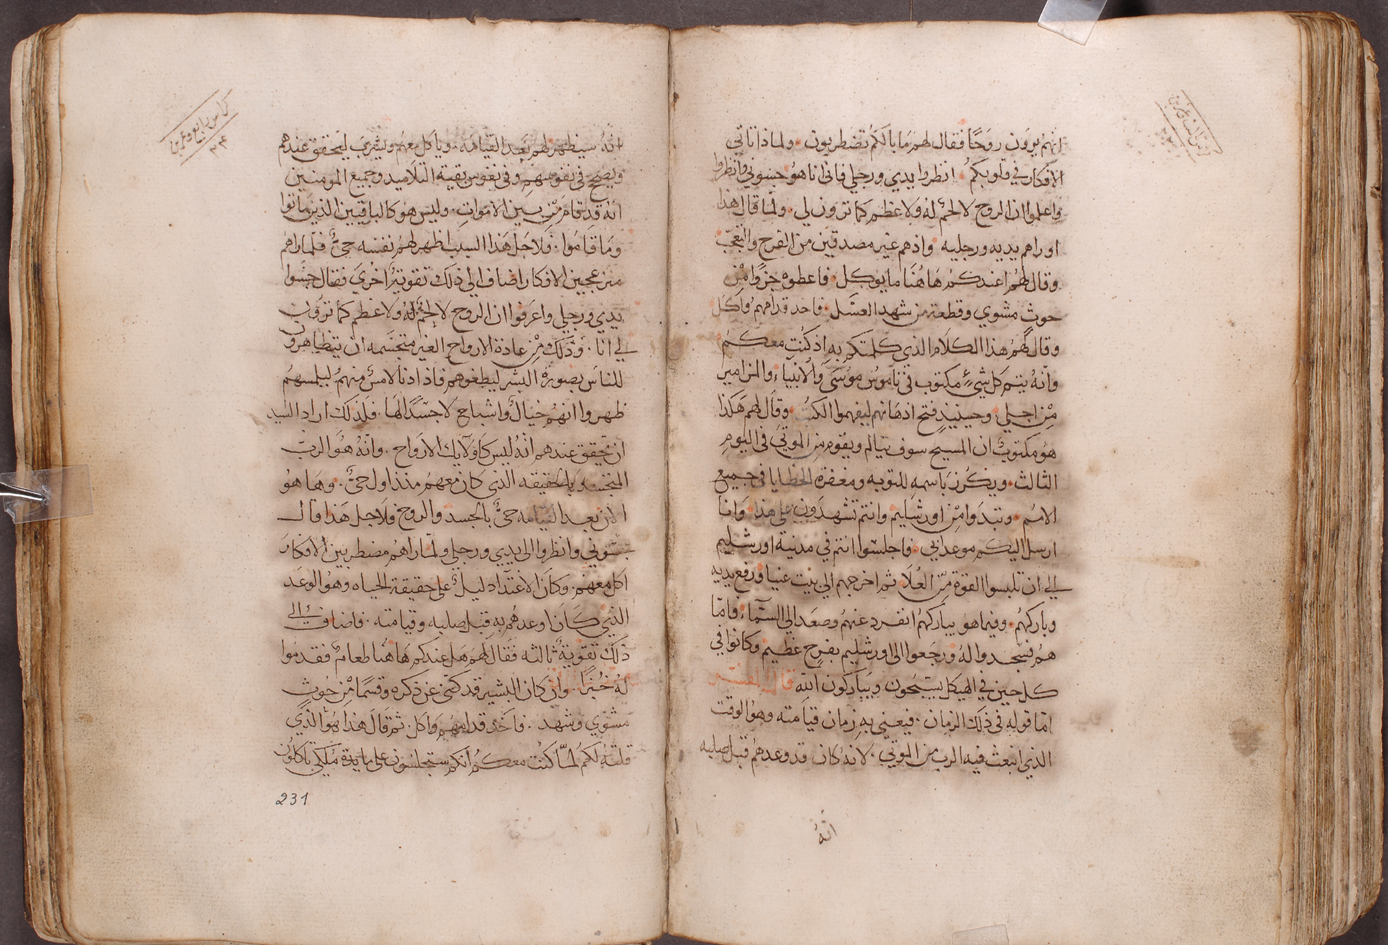 انهم يرون روحًا فقال لهم ما بالكم تضطربون ولماذا تاتي
الافكار في قلوبكم انظروا يدي ورجلي فاني انا هو جسوني وانظروا
واعلموا ان الروح لا لحم له ولا عظم كما ترون لي ولما قال هذا
اوراهم يديه ورجليه واذ هم غير مصدقين من الفرح والتعجب
وقال لهم اعندكم هاهنا ما يوكل فاعطوه جزوًا من
حوت مشوي وقطعة من شهد العسل فاخد قدامهم واكل
وقال لهم هذا الكلام الذي كلمتكم به اذ كنت معكم
وانه يتم كل شيء مكتوب في ناموس موسى والانبياء والمزامير
من اجلي وحينيد فتح اذهانهم ليفهموا الكتب وقال لهم هكذا
هو مكتوب ان المسيح سوف يتالم ويقوم من الموتى في اليوم
الثالث ويكرز باسمه للتوبه ومغفرة الخطايا في جميع
الامم وتبدوا من اورشليم وانتم تشهدون على هذا وانا
ارسل اليكم موعد ابي فاجلسوا انتم في مدينة اورشليم
الى ان تلبسوا القوة من العلا ثم اخرجهم الى بيت عنيا ورفع يديه
وباركهم وفيما هو يباركهم انفرد عنهم وصعد الى السماء واما
هم فسجدوا له ورجعوا الى اورشليم بفرح عظيم وكانوا في
كل حين في الهيكل يسبحون ويباركون الله قال المفسر
اما قوله في ذلك الزمان فيعني به زمان قيامته وهو الوقت
الذي انبعث فيه الرب من الموتى لانه كان قد وعدهم قبل صلبه
انه
انه سيظهر لهم بعد القيامة وياكل معهم ويشرب ليتحقق عندهم
ويصح في نفوسهم وفي نفوس بقية التلاميد وجميع المومنين
انه قد قام من بين الاموات وليس هو كالباقيين الذين ماتوا
وما قاموا فلاجل هذا السبب اظهر لهم نفسه حيّ فلما راهم
منزعجين الافكار اضاف الى ذلك تقوية اخرى فقال جسوا
يدي ورجلي واعرفوا ان الروح لا لحم له ولا عظم كما ترون
لي انا وذلك من عادة الارواح الغير متجسمه ان يتظاهروا
للناس بصورة البشر ليطغوهم فاذا دنا لامس منهم ليلمسهم
ظهروا انهم خيال واشباح لا جسدًا لها فلذلك اراد السيد
ان يحقق عندهم انه ليس كاولايك الارواح وانه هو الرب
المتجسد بالحقيقه الذي كان معهم منذ اول حيّ وها هو
الان بعد القيامه حيّ بالجسد والروح ولاجل هذا قال
جسوني وانظروا الى يدي ورجلي ولما راهم مضطربين الافكار
اكل معهم وكان الاغتدا دليل على حقيقة الحياه وهو الوعد
الذي كان اوعدهم به قبل صلبه وقيامته فاضاف الى
ذلك تقوية ثالثه فقال لهم هل عندكم هاهنا طعام فقدموا
له خبزًا وان كان البشير قد كنى عن ذكره وقسمًا من حوت
مشوي وشهد فاخد قدامهم واكل ثم قال هذا هو الذي
قلته لكم لما كنت معكم انكم ستجلسون على مايدة ملكي تاكلون
231